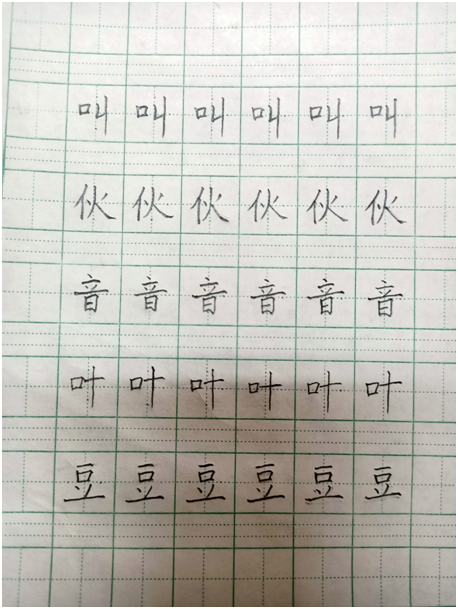 叫叫叫叫叫叫
伙伙伙伙伙伙
音音音音音音
叶叶叶叶叶叶
豆豆豆豆豆豆